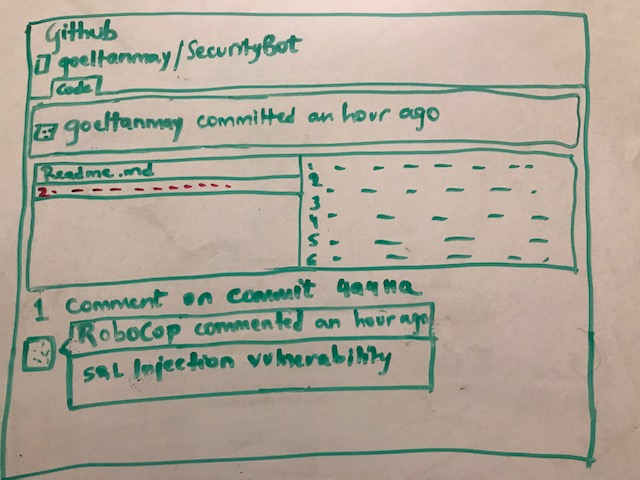 Github
goeltanmay/SecurityBot
Code
goeltanmay committed an hour ago
Readme.md
2.
1
2
3
4
5
6
1 comment on commit
RoboCop commented an hour ago
SQL Injection vulnerability